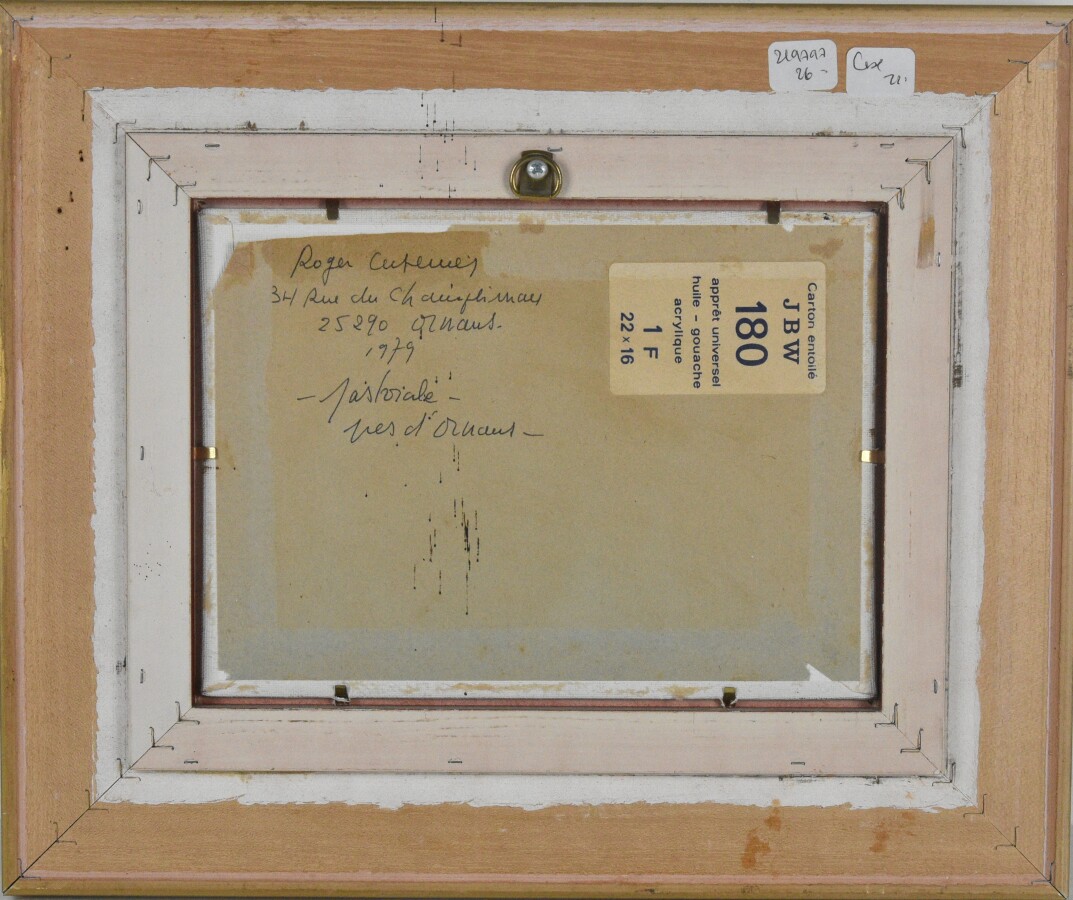 219797
26 -
21.
Roger
34 Rue du
25290 Ornans.
1979
- pastorale -
pres d'Ornans -
Carton entoilé
JBW
180
apprêt universel
huile - gouache
acrylique
1 F
22 x 16